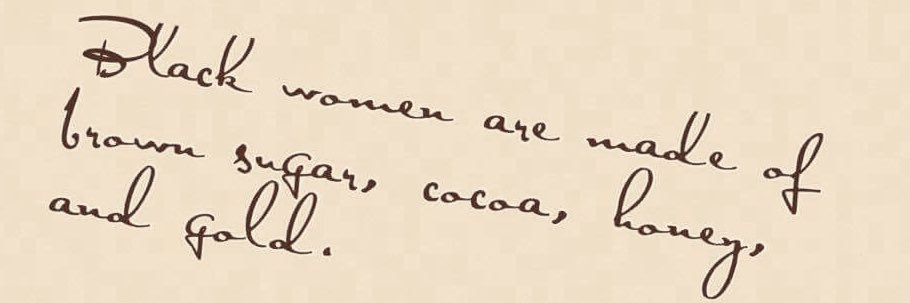 Black women are made of
brown sugar, cocoa, honey,
and gold.